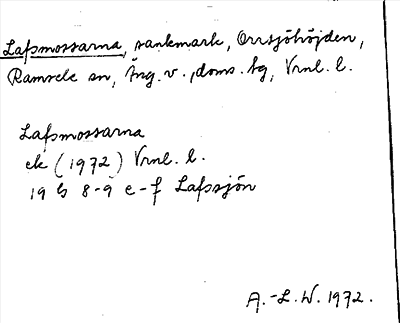 Lafsmossarna, sankmark, Orrsjöhöjden,
Ramsele sn, Ång. v., doms. tg, Vrnl. l.
Lafsmossarna
ek (1972) Vrnl. l.
19 G 8-9 e-f Lafssjön
A.-L.W. 1972.